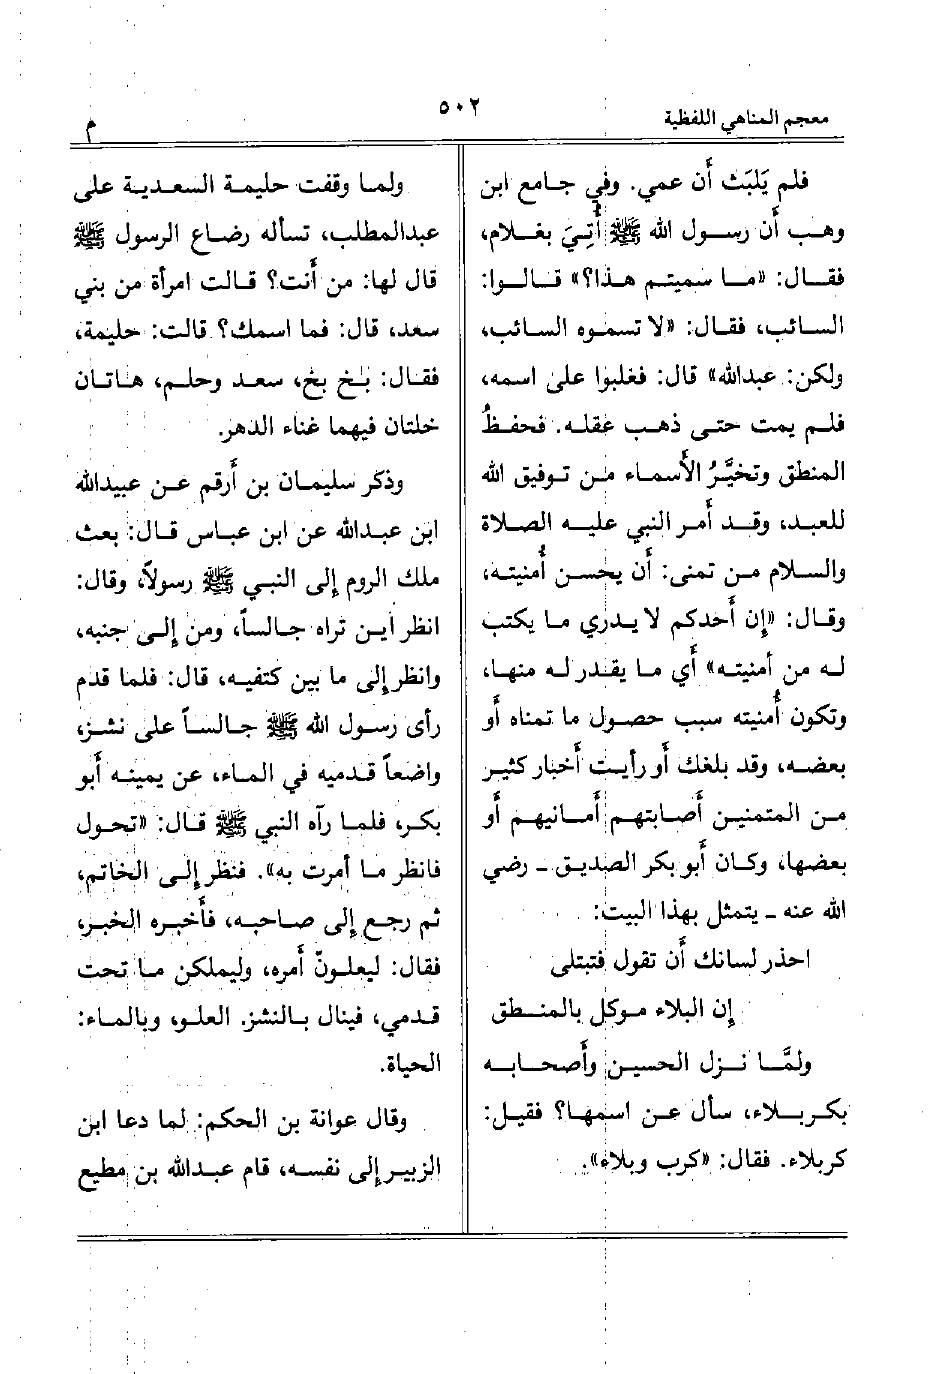 معجم المناهي اللفظية
٥٠٢
م
فلم يَلبَث أَن عمي. وفي جامع ابن
وهب أَن رسول الله ﷺ أُتِيَ بغلام،
فقال: «ما سميتم هذا؟» قالوا:
السائب، فقال: «لا تسموه السائب،
ولكن: عبدالله» قال: فغلبوا على اسمه،
فلم يمت حتى ذهب عقله. فحفظُ
المنطق وتخيَّرُ الأَسماء من توفيق الله
للعبد، وقد أَمر النبي عليه الصلاة
والسلام من تمنى: أَن يحسن أُمنيته،
وقال: «إِن أَحدكم لا يدري ما يكتب
له من أمنيته» أَي ما يقدر له منها،
وتكون أُمنيته سبب حصول ما تمناه أَو
بعضه، وقد بلغك أَو رأَيت أَخبار كثير
من المتمنين أَصابتهم أَمانيهم أَو
بعضها، وكان أَبو بكر الصديق ـ رضي
الله عنه ـ يتمثل بهذا البيت:
احذر لسانك أَن تقول فتبتلى
إِن البلاء موكل بالمنطق
ولمَّا نزل الحسين وأَصحابه
بكربلاء، سأل عن اسمها؟ فقيل:
كربلاء. فقال: «كرب وبلاء».
ولما وقفت حليمة السعدية على
عبدالمطلب، تسأله رضاع الرسول ﷺ
قال لها: من أَنت؟ قالت امرأة من بني
سعد، قال: فما اسمك؟ قالت: حليمة،
فقال: بخ بخ، سعد وحلم، هاتان
خلتان فيهما غناء الدهر.
وذكر سليمان بن أَرقم عن عبيدالله
ابن عبدالله عن ابن عباس قال: بعث
ملك الروم إِلى النبي ﷺ رسولاً، وقال:
انظر أَين تراه جالساً، ومن إِلى جنبه،
وانظر إِلى ما بين كتفيه، قال: فلما قدم
رأى رسول الله ﷺ جالساً على نشز،
واضعاً قدميه في الماء، عن يمينه أَبو
بكر، فلما رآه النبي ﷺ قال: «تحول
فانظر ما أمرت به». فنظر إِلى الخاتم،
ثم رجع إِلى صاحبه، فأَخبره الخبر،
فقال: ليعلونّ أَمره، وليملكن ما تحت
قدمي، فينال بالنشز. العلو، وبالماء:
الحياة.
وقال عوانة بن الحكم: لما دعا ابن
الزبير إِلى نفسه، قام عبدالله بن مطيع